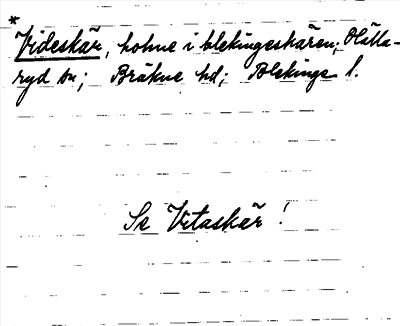 *
Videskär, holme i blekingeskären; Hälla-
ryd sn; Bräkne hd; Blekinge l.
Se Vitaskär!